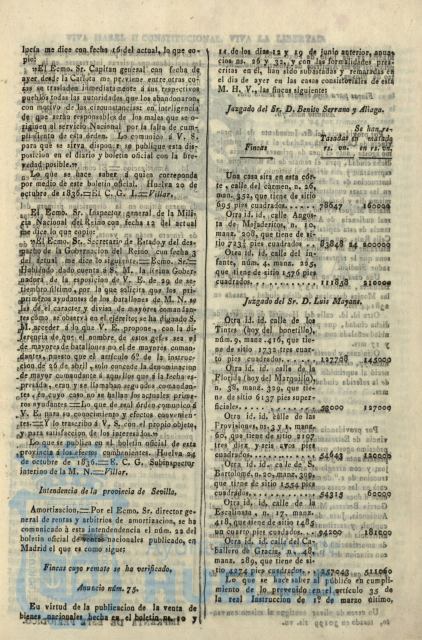 lucía me dice con fecha 16 del actual, lo que copio:
»El Ecmo. Sr. Capitan general con fecha de
ayer desde la Carlota me previene entre otras cosas
se trasladen inmediatamente á sus respectivos
pueblos todas las autoridades que los abandonaron,
con motivo de las circunstancias: en inteligencia
de que serán responsables de los males que se originen
al servicio Nacional por la falta de cumplimiento
de esta órden. Lo comunico á V. S.
para que se sirva disponer se publique esta disposicion
en el diario y boletin oficial con la brevedad
posible.»
Lo que se hace saber á quien corresponda
por medio de este boletin oficial. Huelva 20 de
octubre de 1836.=El C. G. I.=Villar.
El Ecmo. Sr. Inspector general de la Milicia
Nacional del Reino con fecha 12 del actual
me dice lo que copio:
»El Ecmo. Sr. Secretario de Estado y del despacho
de la Gobernacion del Reino con fecha 3
del actual me dice lo siguiente:=Ecmo. Sr.=
Habiendo dado cuenta á S. M. la Reina Gobernadora
de la esposicion de V. E. de 29 de
setiembre último, por la que solicita que los
primeros ayudantes de los batallones de M. N. se
les dé el caracter y divisa de mayores comandantes
como se observa en el ejército; se ha dignado S.
M. acceder á lo que V. E. propone, con la diferencia
de que el nombre de estos gefes sea el
de mayores de batallon y no el de mayores comandantes,
puesto que el artículo 6º de la instruccion
de 26 de abril, solo concede la denominacion
de mayor comandante á aquellos que á la fecha espresada,
eran y se llamaban segundos comandantes,
en cuyo caso no se hallan los actuales primeros
ayudantes.=Lo que de real órden comunico á
V. E. para su conocimiento y efectos convenientes.=Y
lo trascribo á V. S. con el propio objeto,
y para satisfaccion de los interesados.»
Lo que se publica en el boletin oficial de esta
provincia á los efectos convenientes. Huelva 24
de octubre de 1836.=E. C. G. Subinspector
interino de la M. N.=Villar.
Intendencia de la provincia de Sevilla.
Amortizacion.=Por el Ecmo. Sr. director general
de rentas y arbitrios de amortizacion, se ha
comunicado á esta intendencia el núm. 22 del
boletin oficial de ventas nacionales publicado, en
Madrid el que es como sigue:
Fincas cuyo remate se ha verificado.
Anuncio núm. 75.
En virtud de la publicacion de la venta de
bienes nacionales hecha en el boletin ns. 10 y
11 de los dias 12 y 19 de junio anterior, anuncios
ns. 26 y 32, y con las formalidades prescritas
en él, han sido subastadas y rematadas en
el dia de ayer en las casas consistoriales de esta
M. H. V., las fincas siguientes:
Juzgado del Sr. D. Benito Serrano y Aliaga.
Fincas
Tasadas en rs. vn.
Se han rematado en rs. vn.
Una casa sita en esta córte,
calle del carmen, n. 26,
manz. 352, que tiene de sitio
695 pies cuadrados. . . . . 78647 160000
Otra id. id. calle Angosta
de Majaderitos, n. 10,
manz. 208, que tiene de sitio
723¼ pies cuadrados . . 83848 24 200000
Otra id. id. calle del infante,
núm. 4, manz. 215,
que tiene de sitio 1576 pies
cuadrados. . . . . . 111858 210000
Juzgado del Sr. D. Luis Mayans.
Otra id. id. calle de los
Tintes (hoy del bonetillo),
núm. 9, manz. 416, que tiene
de sitio 1732 tres cuarto
pies cuadrados. . . . 127788 145000
Otra id. id. calle de la
Florida (hoy del Marquillo),
n. 38, manz. 329, que tiene
de sitio 6137 pies superficiales.
. . . . 52000 127000
Otra id. id. calle de las
Provisiones, ns. 3 y 2, manz.
60, que tiene de sitio 2107
tres diez y seis avos pies
cuadrados. . . . . 54643 120000
Otra id. id. calle de S.
Bartolomé, n. 20, manz. 309,
que tiene de sitio 1554 pies
cuadrados. . . . . 54315 60000
Otra id. id. calle de la
Escalinata, n. 17, manz.
418, que tiene de sitio 1485
un cuarto pies cuadrados. . 94200 181000
Otra id. id. calle del Caballero
de Gracia, n. 48,
manz. 289, que tiene de sitio
4274 pies cuadrados . . 257043 511060
Lo que se hace saber al público en cumplimiento
de lo prevenido en el artículo 35 de
la real Instruccion de 1º de marzo último,